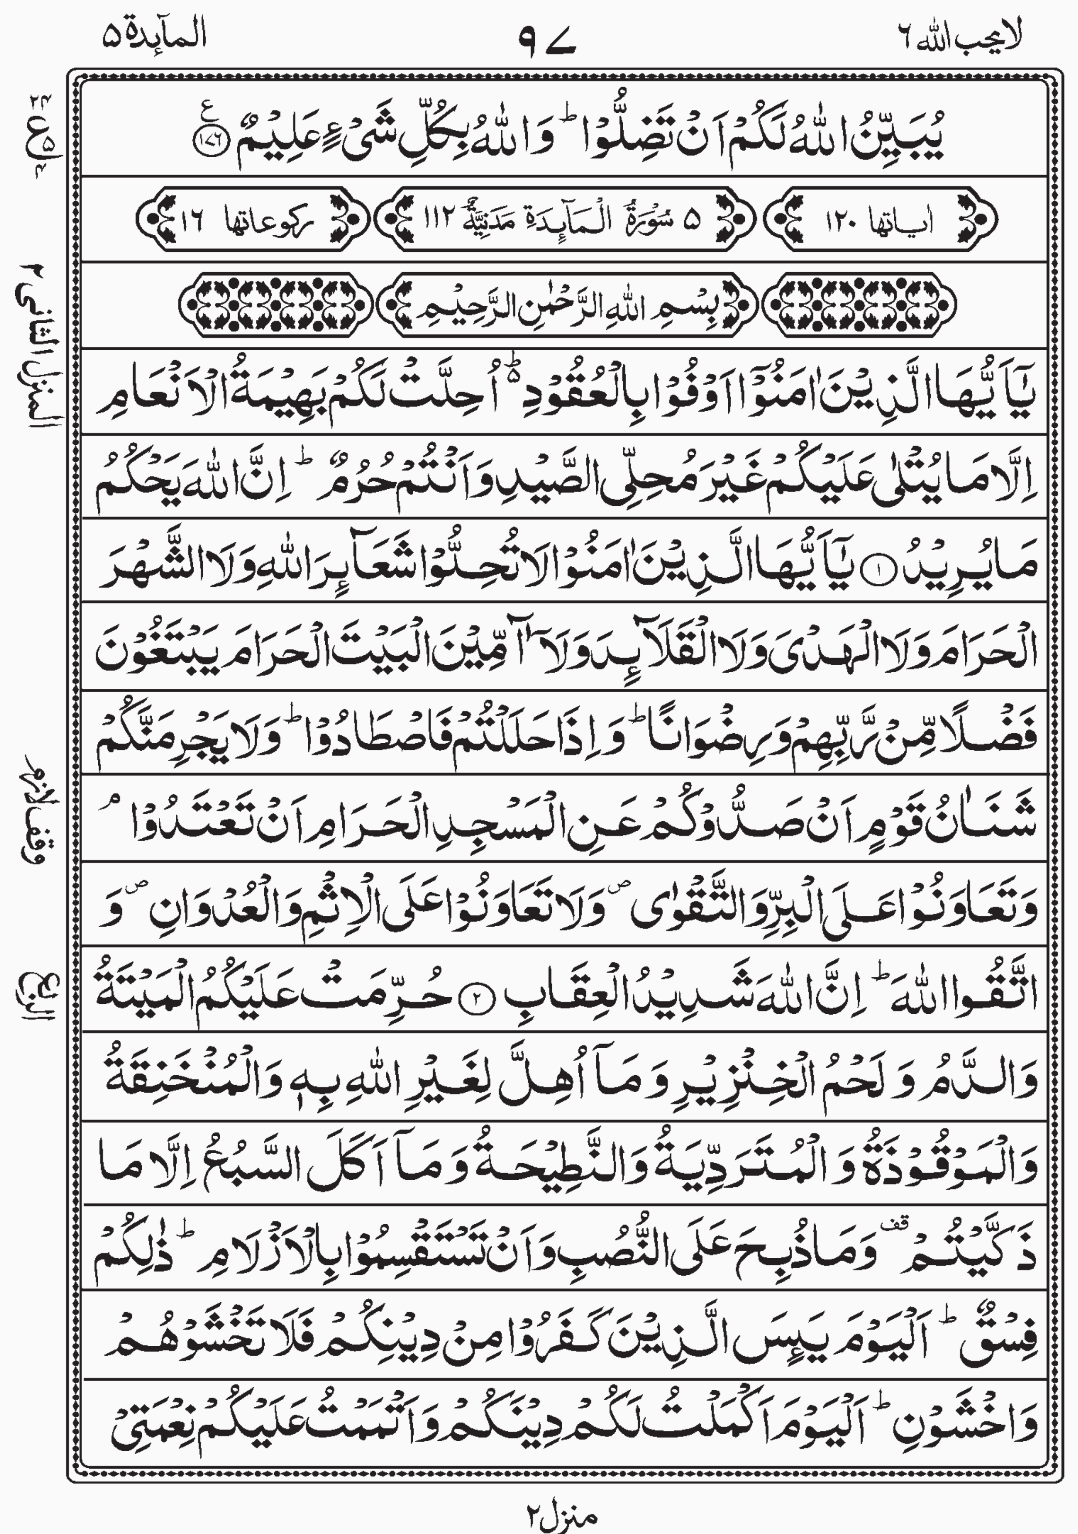 لا يحب الله ٦
٩٧
المآىِٕدة ٥
يُبَيِّنُ اللّٰهُ لَكُمْ اَنْ تَضِلُّوْا ؕ وَ اللّٰهُ بِكُلِّ شَیْءٍ عَلِيْمٌ ۧ ﴿۱۷۶﴾
اٰياتها ۱۲۰
۵ سُوْرَةُ الْمَآىِٕدَةِ مَدَنِيَّةٌ ۱۱۲
ركوعاتها ۱۶
بِسْمِ اللّٰهِ الرَّحْمٰنِ الرَّحِيْمِ
يٰۤاَيُّهَا الَّذِيْنَ اٰمَنُوْۤا اَوْفُوْا بِالْعُقُوْدِ ؕ۬ اُحِلَّتْ لَكُمْ بَهِيْمَةُ الْاَنْعَامِ
اِلَّا مَا يُتْلٰى عَلَيْكُمْ غَيْرَ مُحِلِّی الصَّيْدِ وَ اَنْتُمْ حُرُمٌ ؕ اِنَّ اللّٰهَ يَحْكُمُ
مَا يُرِيْدُ ﴿۱﴾ يٰۤاَيُّهَا الَّذِيْنَ اٰمَنُوْا لَا تُحِلُّوْا شَعَآىِٕرَ اللّٰهِ وَ لَا الشَّهْرَ
الْحَرَامَ وَ لَا الْهَدْیَ وَ لَا الْقَلَآىِٕدَ وَ لَاۤ آٰمِّيْنَ الْبَيْتَ الْحَرَامَ يَبْتَغُوْنَ
فَضْلًا مِّنْ رَّبِّهِمْ وَ رِضْوَانًا ؕ وَ اِذَا حَلَلْتُمْ فَاصْطَادُوْا ؕ وَ لَا يَجْرِمَنَّكُمْ
شَنَاٰنُ قَوْمٍ اَنْ صَدُّوْكُمْ عَنِ الْمَسْجِدِ الْحَرَامِ اَنْ تَعْتَدُوْا ۘ
وَ تَعَاوَنُوْا عَلَى الْبِرِّ وَ التَّقْوٰى ۪ وَ لَا تَعَاوَنُوْا عَلَى الْاِثْمِ وَ الْعُدْوَانِ ۪ وَ
اتَّقُوا اللّٰهَ ؕ اِنَّ اللّٰهَ شَدِيْدُ الْعِقَابِ ﴿۲﴾ حُرِّمَتْ عَلَيْكُمُ الْمَيْتَةُ
وَ الدَّمُ وَ لَحْمُ الْخِنْزِيْرِ وَ مَاۤ اُهِلَّ لِغَيْرِ اللّٰهِ بِهٖ وَ الْمُنْخَنِقَةُ
وَ الْمَوْقُوْذَةُ وَ الْمُتَرَدِّيَةُ وَ النَّطِيْحَةُ وَ مَاۤ اَكَلَ السَّبُعُ اِلَّا مَا
ذَكَّيْتُمْ قف وَ مَا ذُبِحَ عَلَى النُّصُبِ وَ اَنْ تَسْتَقْسِمُوْا بِالْاَزْلَامِ ؕ ذٰلِكُمْ
فِسْقٌ ؕ اَلْيَوْمَ يَىِٕسَ الَّذِيْنَ كَفَرُوْا مِنْ دِيْنِكُمْ فَلَا تَخْشَوْهُمْ
وَ اخْشَوْنِ ؕ اَلْيَوْمَ اَكْمَلْتُ لَكُمْ دِيْنَكُمْ وَ اَتْمَمْتُ عَلَيْكُمْ نِعْمَتِیْ
۲۴ ع ۵ ۴
المنزل الثانی ۲
وقف لازم
الربع
منزل ۲